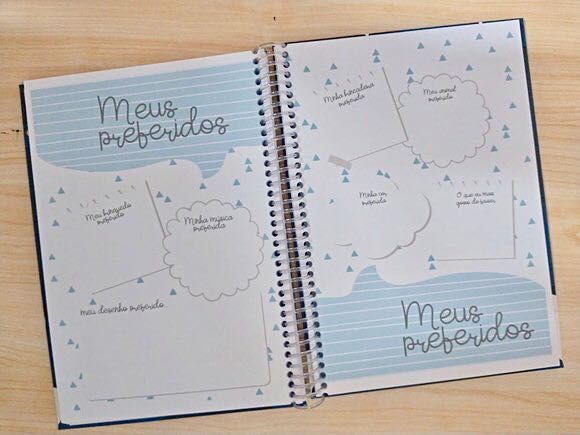 Meus
preferidos
Meu brinquedo
preferido
Minha música
preferida
meu desenho preferido
Minha brincadeira
preferida
Meu animal
preferido
Minha cor
preferida
O que eu mais
gosto de fazer
Meus
preferidos